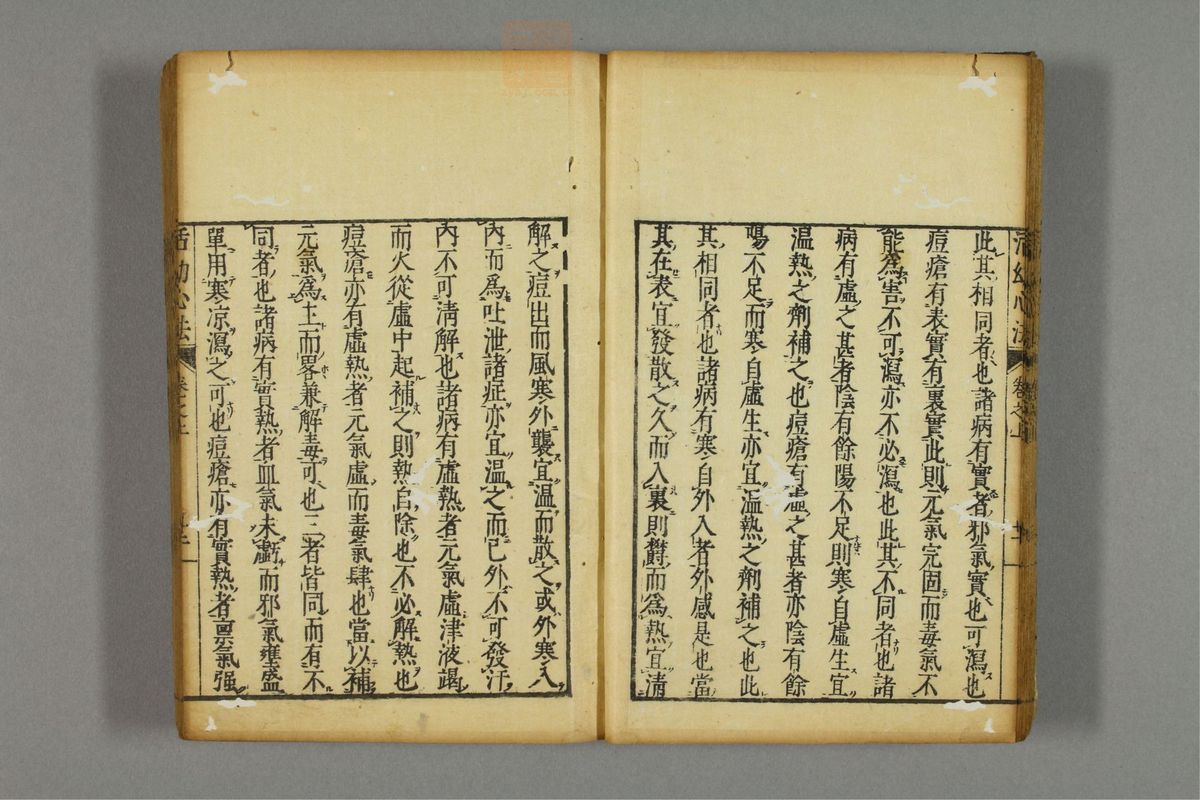 此其相同者也諸病有實者邪氣實也可瀉也
痘瘡有表實有裏實此則元氣完固而毒氣不
能爲害不可瀉亦不必瀉也此其不同者也諸
病有虛之甚者陰有餘陽不足則寒自虛生宜
温熱之劑補之也痘瘡有虛之甚者亦陰有餘
陽不足而寒自虛生亦宜温熱之劑補之也此
其相同者也諸病有寒自外入者外感是也當
其在表宜發散之久而入裏則欝而爲熱宜清
活幼心法
卷之上
解之痘出而風寒外襲宜温而散之或外寒入
內而爲吐泄諸症亦宜温之而已外不可發汗
內不可清解也諸病有虛熱者元氣虛津液竭
而火從虛中起補之則熱自除也不必解熱也
痘瘡亦有虛熱者元氣虛而毒氣肆也當以補
元氣爲主而畧兼解毒可也三者皆同而有不
同者也諸病有實熱者血氣未虧而邪氣壅盛
單用寒凉瀉之可也痘瘡亦有實熱者禀氣强
活幼心法
卷之上